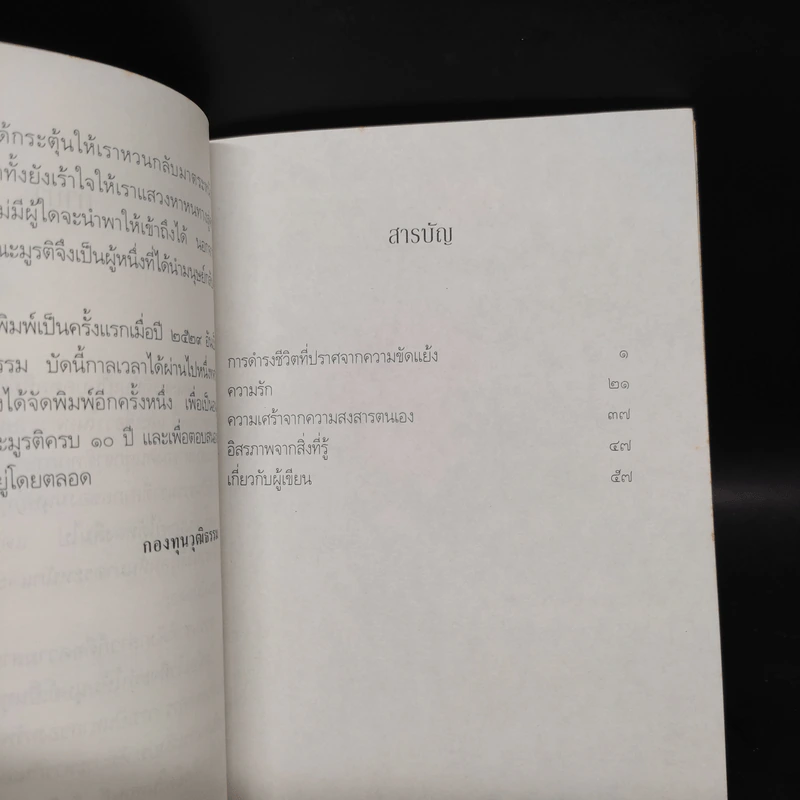 กระตุ้นให้เราหวนกลับมา
ทั้งยังเร้าใจให้เราแสวงหาหนทาง
มีผู้ใดจะนำพาให้เข้าถึงได้
มูรติจึงเป็นผู้หนึ่งที่ได้นำมนุษย์
พิมพ์เป็นครั้งแรกเมื่อปี ๒๕๒๙
รรม บัดนี้กาลเวลาได้ผ่านไป
ได้จัดพิมพ์อีกครั้งหนึ่ง เพื่อเป็น
ะมูรติครบ ๑๐ ปี และเพื่อตอบสนอ
ยู่โดยตลอด
กองทุนวุฒิธรรม
สารบัญ
การดำรงชีวิตที่ปราศจากความขัดแย้ง ๑
ความรัก ๒๑
ความเศร้าจากความสงสารตนเอง ๓๗
อิสรภาพจากสิ่งที่รู้ ๔๗
เกี่ยวกับผู้เขียน ๕๗